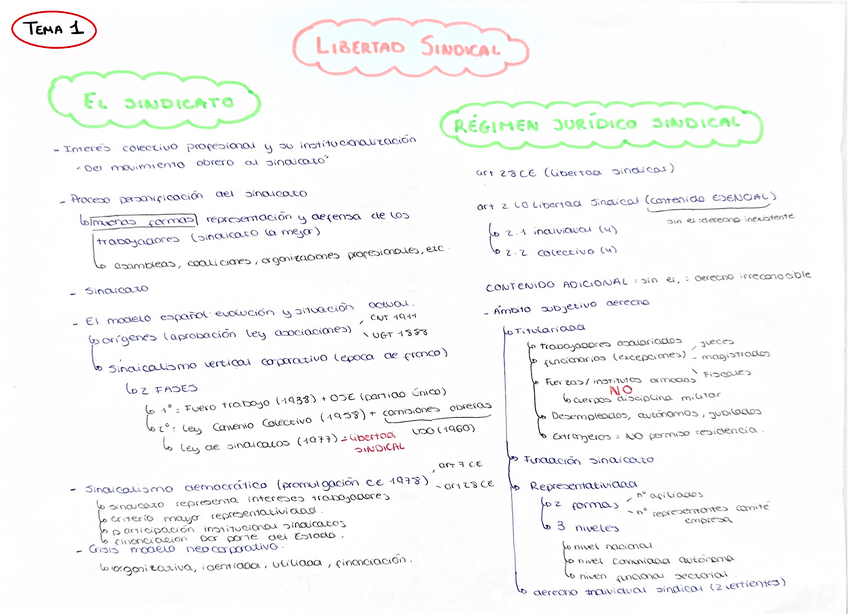 TEMA 1
LIBERTAD SINDICAL
EL SINDICATO
- Interés colectivo profesional y su institucionalización
"Del movimiento obrero al sindicato"
- Proceso personificación del sindicato
muchas formas representación y defensa de los
trabajadores (sindicato la mejor)
asambleas, coaliciones, organizaciones profesionales, etc.
- Sindicato
- El modelo español: evolución y situación actual.
orígenes (aprobación ley asociaciones)
CNT 1911
UGT 1888
Sindicalismo vertical corporativo (época de franco)
2 FASES
1º: Fuero trabajo (1938) + OSE (partido único)
2º: Ley Convenio Colectivo (1958) + comisiones obreras
USO (1960)
Ley de sindicatos (1977) = libertad
SINDICAL
- Sindicalismo democrático (promulgación CE 1978)
art 7 CE
art 28 CE
sindicato representa intereses trabajadores
criterio mayor representatividad.
participación institucional sindicatos
financiación por parte del Estado.
- Crisis modelo neocorporativo.
organizativa, identidad, utilidad, financiación.
RÉGIMEN JURÍDICO SINDICAL
art 28 CE (libertad sindical)
art 2 LO Libertad Sindical (contenido ESENCIAL)
sin el: derecho inexistente
2.1 individual (4)
2.2 colectivo (4)
CONTENIDO ADICIONAL: sin el, : derecho irreconocible
- Ámbito subjetivo derecho
Titularidad
trabajadores asalariados
funcionarios (excepciones)
jueces
magistrados
Fiscales
Fuerzas/institutos armados
NO
cuerpos disciplina militar
Desempleados, autónomos, jubilados
Extranjeros = NO permiso residencia.
Fundación sindicato
Representatividad
2 formas
nº afiliados
nº representantes comité
empresa
3 niveles
nivel nacional
nivel comunidad autónoma
niven funcional sectorial
derecho individual sindical (2 vertientes)